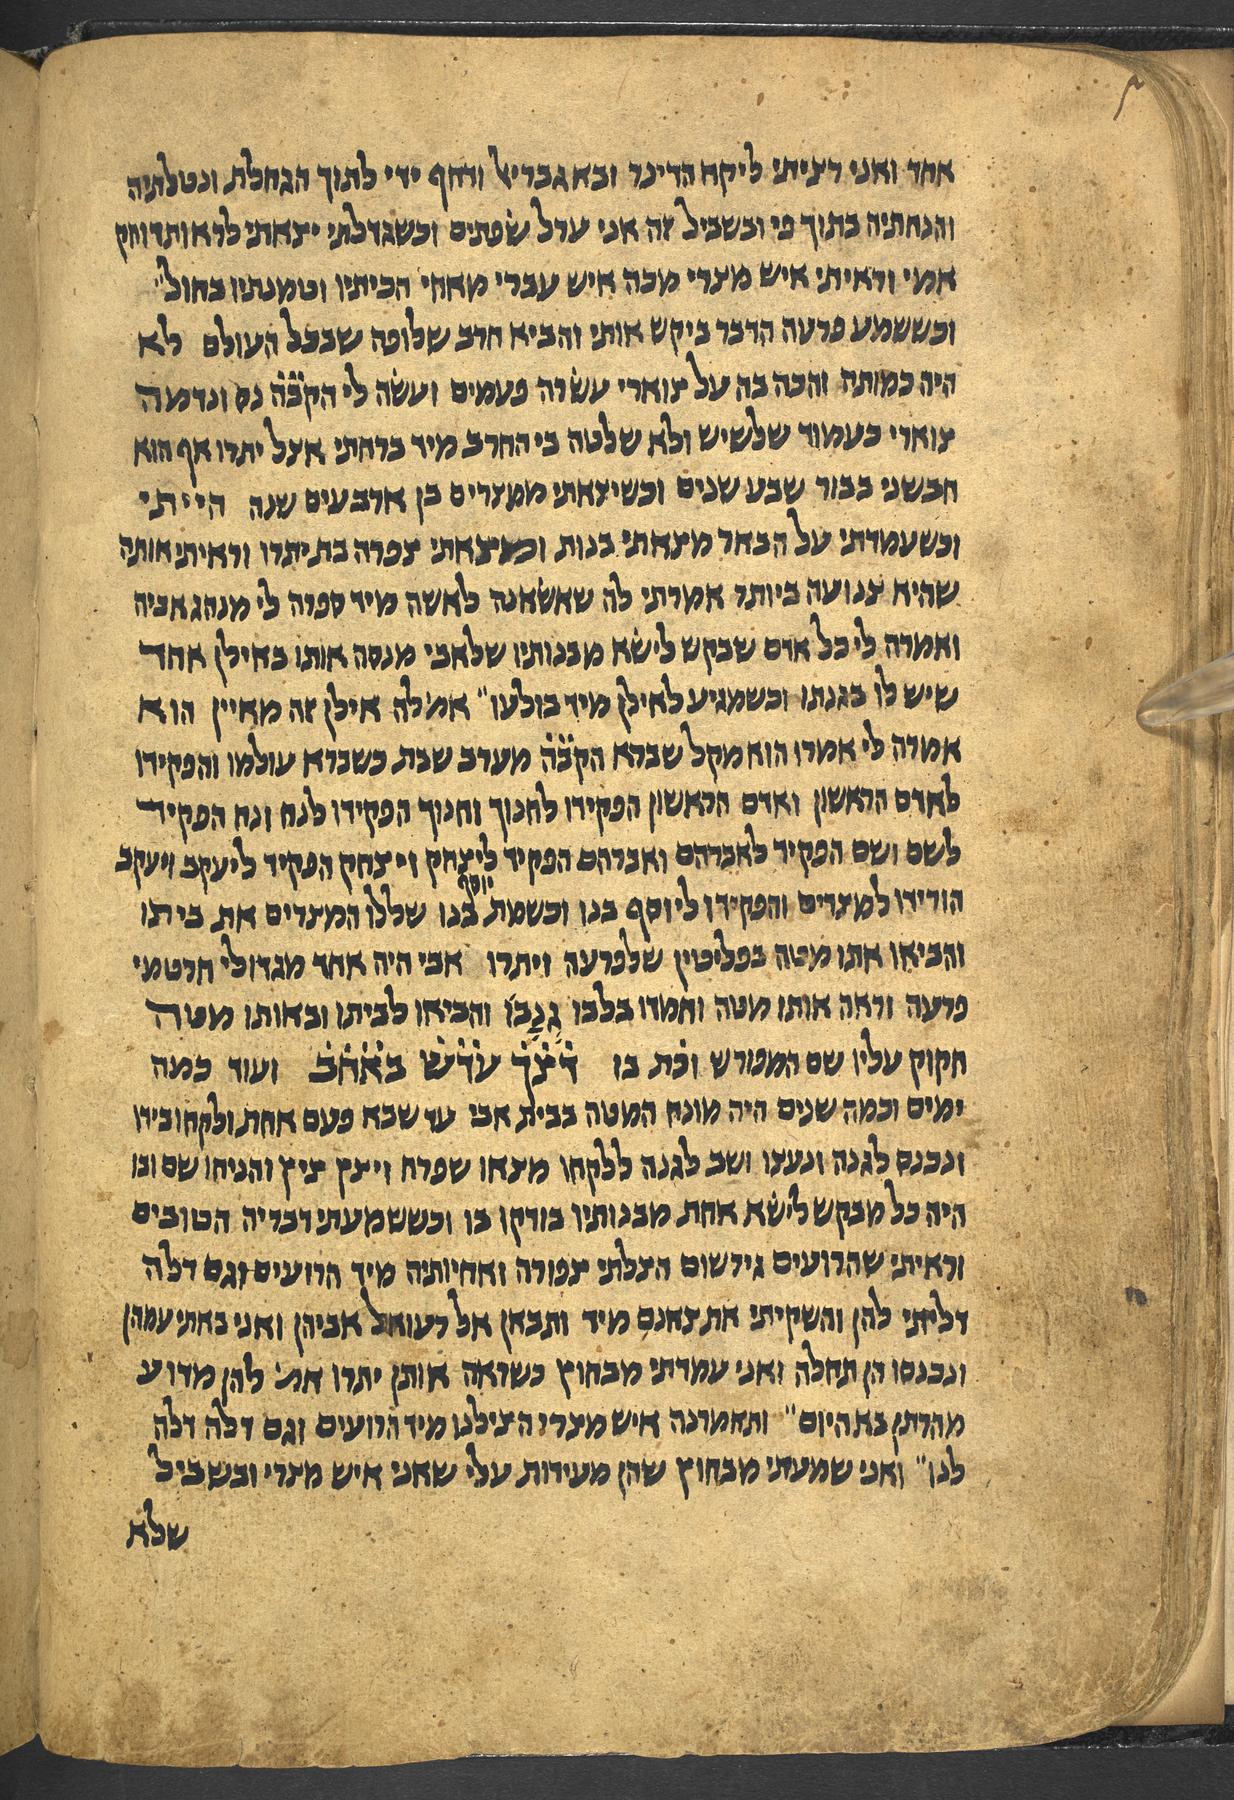 אחד ואני רציתי ליקח הדינר ובא גבריאל ודחף ידי לתוך הגחלת ונטלתיה
והנחתיה בתוך פי ובשביל זה אני ערל שפתים וכשגדלתי יצאתי לראות דוחק
אמי וראיתי איש מצרי מכה איש עברי מאחי הכיתיו וטמנתיו בחול"
וכששמע פרעה הדבר ביקש אותי והביא חרב שלופה שבכל העולם לא
היה כמותה והכה בה על צוארי עשרה פעמים ועשה לי הק̇ב̇ה̇ נס ונדמה
צוארי כעמוד שלשיש ולא שלטה בי החרב מיד ברחתי אצל יתרו אף הוא
חבשני בבור שבע שנים וכשיצאתי ממצרים בן ארבעים שנה הייתי
וכשעמדתי על הבאר מצאתי בנות ומצאתי צפרה בת יתרו וראיתי אותה
שהיא צנועה ביותר אמרתי לה שאשאנה לאשה מיד ספרה לי מנהג אביה
ואמרה לי כל אדם שבקש לישא מבנותיו שלאבי מנסה אותו באילן אחד
שיש לו בגנתו וכשמגיע לאילן מיד בולעו" אמ' לה אילן זה מאיין הוא
אמרה לי אמרו הוא מקל שברא הק̇ב̇ה̇ מערב שבת כשברא עולמו והפקידו
לאדם הראשון ואדם הראשון הפקידו לחנוך וחנוך הפקידו לנח ונח הפקיד
לשם ושם הפקיד לאברהם ואברהם הפקיד ליצחק ויצחק הפקיד ליעקב ויעקב
הורידו למצרים והפקידו ליוסף בנו וכשמת יוסף בנו שללו המצרים את ביתו
והביאו אתו מטה בפליטין שלפרעה ויתרו אבי היה אחד מגדולי חרטמי
פרעה וראה אותו מטה וחמדו בלבו וגנבו והביאו לביתו ובאותו מטה
חקוק עליו שם המפורש וכת בו ד̇צ̇ך̇ ע̇ד̇ש̇ ב̇א̇ח̇ב̇ ועוד כמה
ימים וכמה שנים היה מונח המטה בבית אבי עד שבא פעם אחת ולקחו בידו
ונכנס לגנה ונעצו ושב לגנה ללקחו מצאו שפרח ויצץ ציץ והניחו שם ובו
היה כל מבקש לישא אחת מבנותיו בודקו בו וכששמעתי דבריה הטובים
וראיתי שהרועים גירשום הצלתי צפורה ואחיותיה מיד הרועים וגם דלה
דליתי להן והשקיתי את צאנם מיד ותבאן אל רעואל אביהן ואני באתי עמהן
ונכנסו הן תחלה ואני עמדתי מבחוץ כשראה אותן יתרו אמ' להן מדוע
מהרתן בא היום" ותאמרנה איש מצרי הצילנו מיד הרועים וגם דלה דלה
לנו" ואני שמעתי מבחוץ שהן מעידות עלי שאני איש מצרי ובשביל
שלא